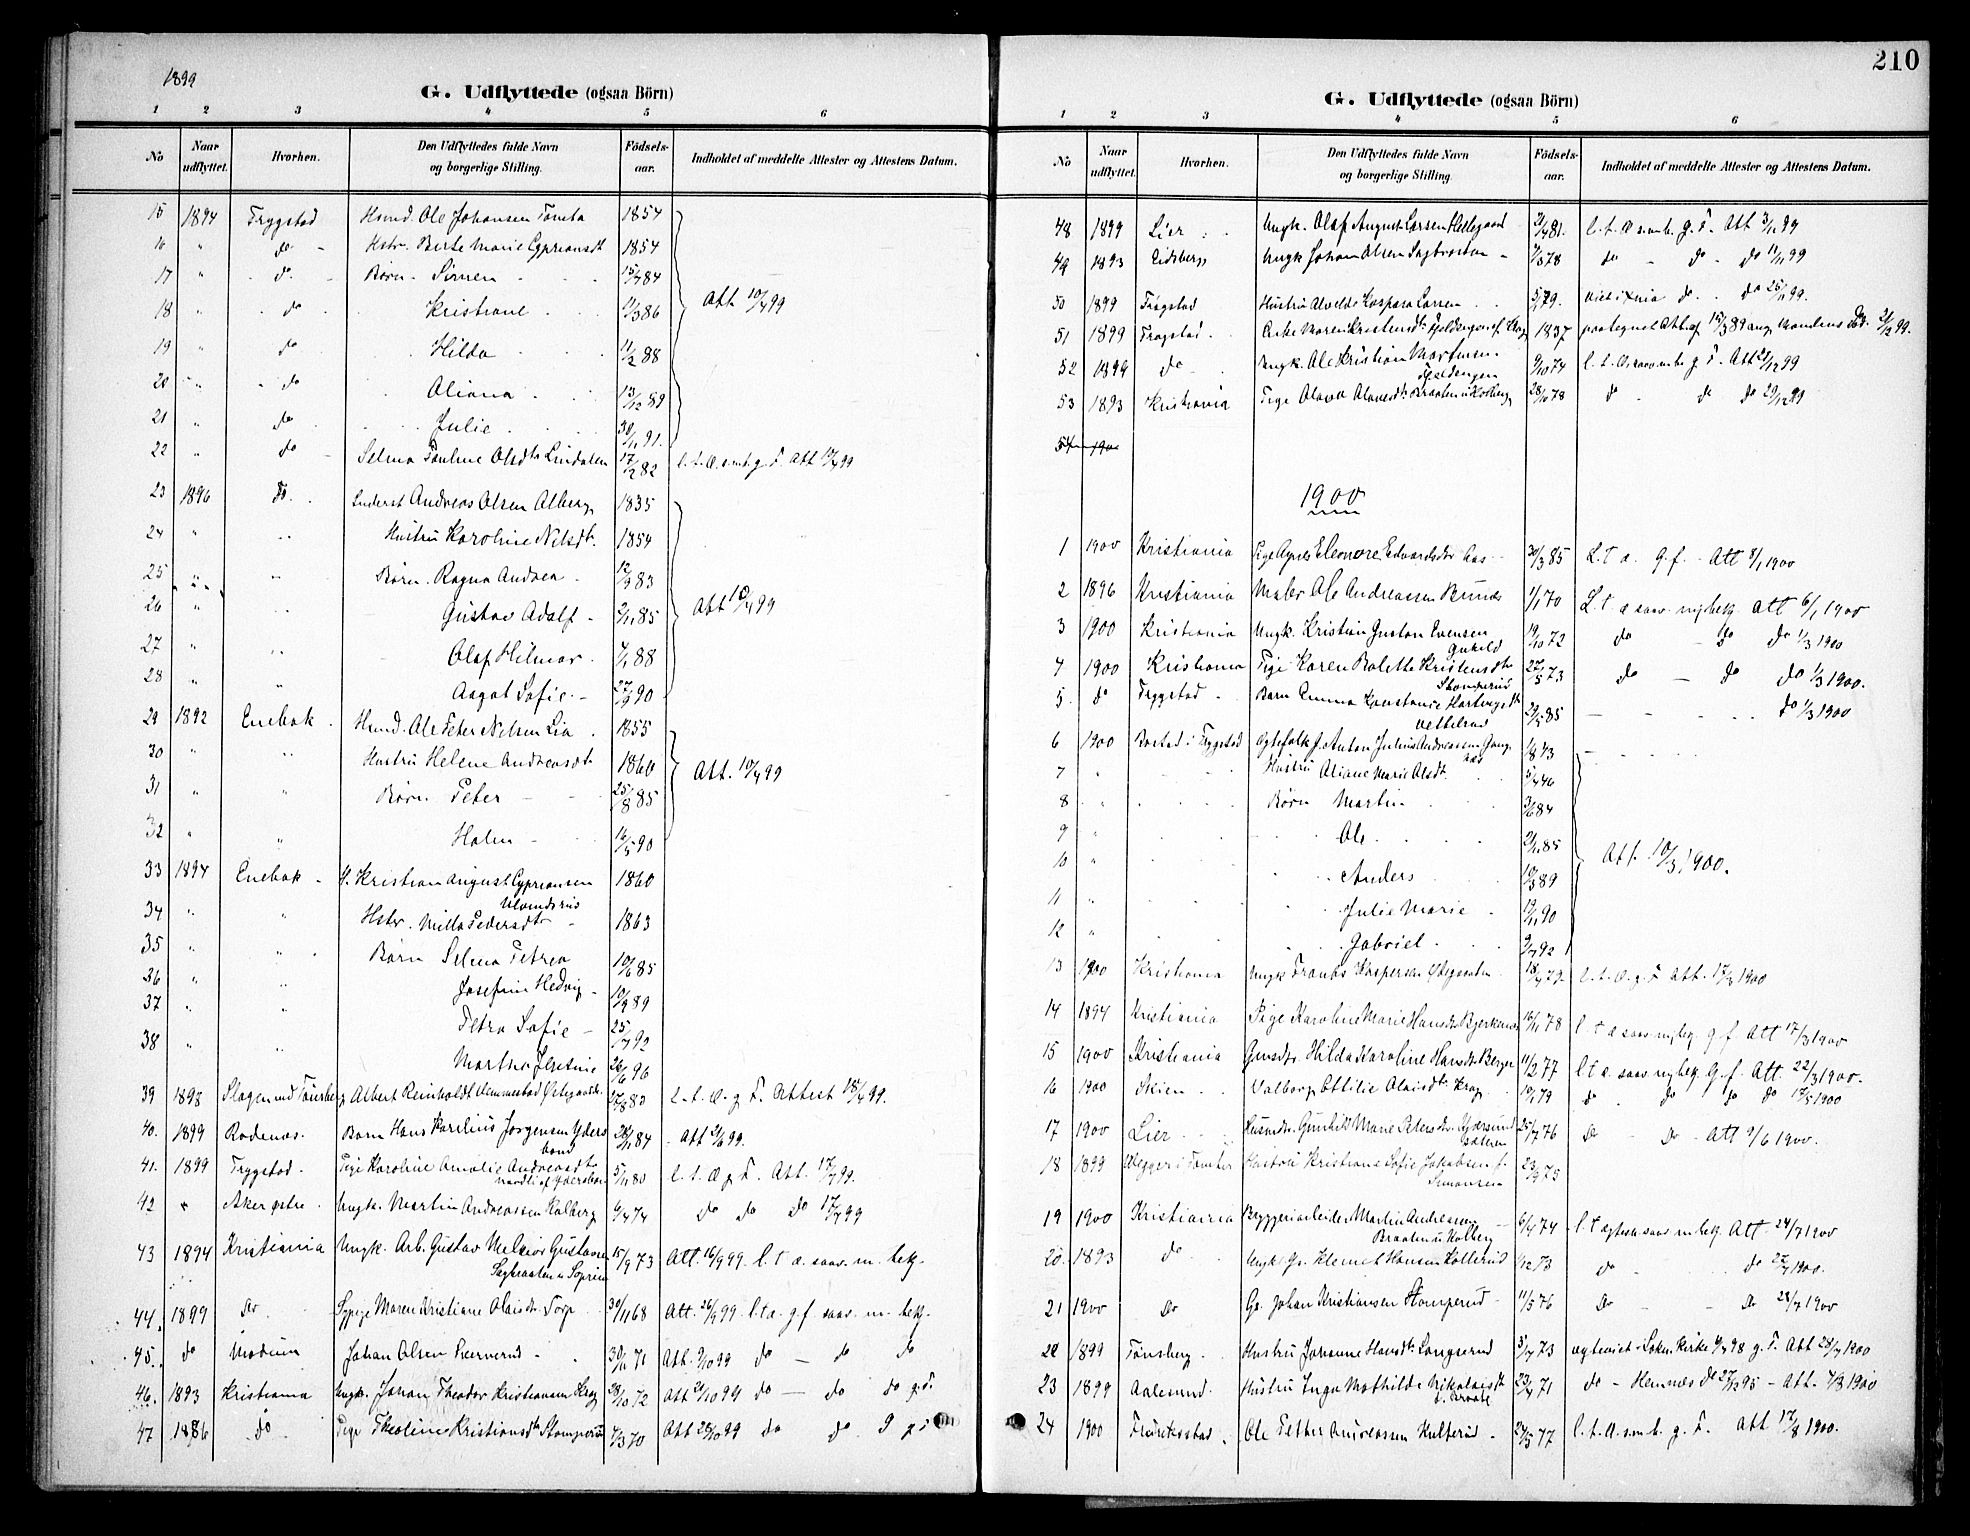 1899
G. Udflyttede (ogsaa Börn)
1 2 3 4 5 6
No Naar udflyttet. Hvorhen. Den Udflyttedes fulde Navn og borgerlige Stilling. Födsels-aar. Indholdet af meddelte Attester og Attestens Datum.
15 1894 Trygstad Husmd. Ole Johansen Tomta 1854
16 " do Hstr. Birte Marie Cypriansdt 1854
17 " do. Børn. Simen 15/4 84
18 " do Kristiane 21/3 86 Att 10/4 99
19 " do Hilda 11/2 88
20 " do Oliana 13/12 89
21 " do Julie 30/11 91.
22 " do Selma Pauline Olsdtr Lindalen 17/2 82 l.t.æ.s.m.b. g. F. Att 10/4 99
23 1896 do. Inderst Andreas Olsen Alberg 1835
24 " " Hustru Karoline Nilsdt. 1854
25 " " Børn. Ragna Andrea 12/9 83
26 " " Gustav Adolf 2/11 85 Att 10/4 99
27 " " Olaf Hilmar 7/1 88
28 " " Aagot Sofie 27/9 90
29 1892 Enebak Husmd. Ole Peter Nilsen Lia 1855
30 " " Hustru Helene Andreasdt 1860 Att. 10/4 99
31 " " Børn Peter 25/8 85
32 " " Halm 16/5 90
33 1894 Enebak G. Kristian August Cypriansen 1860
34 " " Hstr. Milla Pedersdtr 1863
35 " " Børn Selma Petrea 10/6 85
36 " " Josefine Hedvig 10/9 89
37 " " Petra Sofie 25/7 92
38 " " Martha Jensine 26/6 96
39 1898 Slagen ved Tønsberg Albert Reinholdt 17/8 80 l.t.æ. g F. Attest 18/4 99.
40. 1899 Rødenæs. Barn Hans Karelius Jørgensen Ydersbond 28/11 84 Att 21/6 99.
41. 1899 Trygstad. Pige Karoline Amalie Andreasdt 5/11 80 l.t.æ g F. Att. 17/7 99.
42 " Aker østre Ungk. Martin Andreassen Kolberg 6/4 74 do do do 17/7 99
43 1894 Kristiania Ungk. Arb. Gustav Melkior Gustavsen 15/9 73 Att 16/9 99. l.t æ. saav. m. bekj.
44. 1899 do Sypige Maren Kristiane Olaisdtr Torp 30/11 68 Att. 26/9 99. l.t.æ. g.f saav. m. bekj.
45. do Modum Johan Olsen 30/11 71 Att. 9/10 99 do — do do
46. 1893 Kristiania Ungk. Johan Theodor Kristiansen Krog 28/10 72 Att 21/10 99 do — do do g.F.
47 1886 do Pige Theoline Kristiansdtr Stomperud 7/3 70 Att 28/10 99 do do g F
210
G. Udflyttede (ogsaa Börn)
1 2 3 4 5 6
No Naar udflyttet. Hvorhen. Den Udflyttedes fulde Navn og borgerlige Stilling. Födsels-aar. Indholdet af meddelte Attester og Attestens Datum.
48 1899 Lier Ungk. Olaf August Larsen 2/4 81. l.t.æ s.m.b. g. F. Att 3/11 99
49 1893 Eidsberg Ungk Johan Olsen Sagbraaten 7/3 78 do do do 11/11 99
50 1899 Trøgstad Hustru Alvilde Kaspara Larsen 5/1 79. viet i Xnia do. do 25/11 99.
51 1899 Trøgstad. Enke Maren Kristensdtr 1837 paategnet Att af 12/3 89 ang Mandens Død 21/12 99.
52 1899 do Ungk. Ole Kristian Martinsen Gjeldengen 9/10 74 l.t.æ saav m b g F. Att 21/12 99
53 1893 Kristiania Pige Olava Olavesdtr Braaten u Kolberg 28/10 78 do do do 29/12 99
54 1900
1900
1 1900 Kristiania Pige Agnes Eleonore Edvardsdtr Aas 30/3 85 L. t æ. g. f. Att 8/1 1900
2 1896 Kristiania Maler Ole Andreassen Bunæs 1/1 70 L. t æ saav. m. bekj. Att 6/1 1900
3 1900 Kristiania Ungk. Kristian Gustav Evensen 19/10 72 do — do do 1/3 1900
4 1900 Kristiania Pige Karen Bolette Kristensdtr Stomperud 27/5 73 do — do do 1/3 1900.
5. do Trygstad Barn Emma Konstance Hartvigsdt 29/5 85 — do 1/3 1900
6 1900 Bøstad i Trygstad Egtefolk J. Anton Julius Andreassen 1/8 43
7 " Hustru Oliane Marie Olsdt. 5/4 46
8 " Børn Martin 3/6 84
9 " Ole 2/11 85 Att. 10/3 1900.
10 " Anders 10/3 89
11 " Julie Marie 12/11 90
12 " Gabriel 9/7 92
13 1900 Kristiania Ungk Frants Kaspersen 18/7 79. l.t.æ. g. F Att. 17/3 1900
14 1894 Kristiania Pige Karoline Marie Hansdtr Bjerkenæs 16/11 78 l. t æ saav m bekj. g. f Att 17/3 1900
15 1900 Kristiania Gmsdtr. Hilda Karoline Hansdtr Berger 11/2 77 l t æ. saav m bekj. g. f. Att. 22/3 1900.
16 1900 Skien Valborg Ottilie Olaisdtr Krog 10/1 79 do do do do 19/5 1900
17 1900 Lier Husmdtr Gunhild Marie Petersdtr 25/7 76 do — do Att 9/6 1900.
18 1899 i Tomter Hustru Kristiane Sofie Jakobsen f. Simonsen 23/9 75
19 1900 Kristiania Bryggeriarbeider Martin Andreassen Braaten u Kolberg 6/4 74 l. t æ saav m bekj. Att 24/7 1900
20. 1893 do Ungk. Gs. Klemet Hansen Kollerud 1/12 73 do do 27/7 1900.
21 1900 do Gs. Johan Kristiansen Stomperud 11/5 76 do do 28/7 1900
22 1899 Tønsberg Hustru Johanne Hansdtr Langserud 3/7 73 egteviet i Søkn. Kirke 98 g. F. Att 28/7 1900
23 1899 Aalesund. Hustru Inga Mathilde Nikolaisdt 23/4 71 do - Hemnæs do 27/12 95 - Att. 7/8 1900
24 1900 Fredriksstad Ole Petter Andreassen Kulterud 24/5 77 l.t.æ. s.m.b. g. F. Att 17/8 1900.